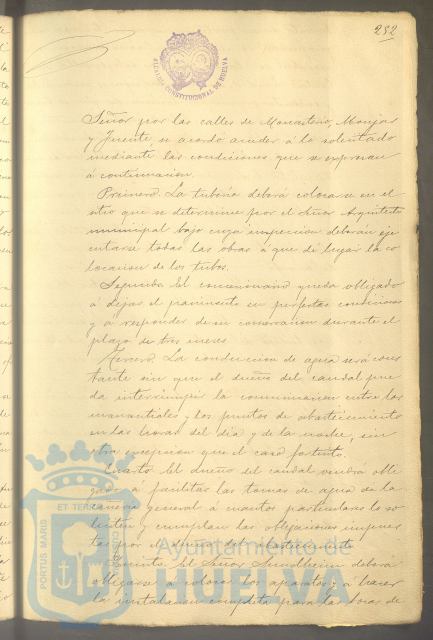 252
ALCALDIA CONSTITUCIONAL DE HUELVA
Señor por las calles de Monasterio, Monjas
y Fuente se acordó acceder á lo solicitado
mediante las condiciones que se expresan
á continuacion.
Primero. La tubería deberá colocarse en el
sitio que se determine por el Señor Arquitecto
municipal bajo cuya inspeccion deberán eje
cutarse todas las obras á que dé lugar la co
locacion de los tubos.
Segunda. El concesionario queda obligado
á dejar el pavimento en perfectas condiciones
y á responder de su conservacion durante el
plazo de tres meses
Tercera. La conduccion de agua será cons
tante sin que el dueño del caudal pue
da interrumpir la comunicacion entre los
manantiales y los puntos de abastecimiento
en las horas del dia y de la noche, sin
otra excepcion que el caso fortuito.
Cuarto. El dueño del caudal vendrá obli
gado á facilitar las tomas de agua de la
cañeria general á cuantos particulares lo so
liciten y cumplan las obligaciones impues
tas por el dueño del abastecimiento
Quinto. El Señor Sundheim deberá
obligarse á colocar los aparatos y á hacer
la instalacion completa para las bocas de
PORTUS MARIS ET TERRAE CUSTODIO
Ayuntamiento de
HUELVA